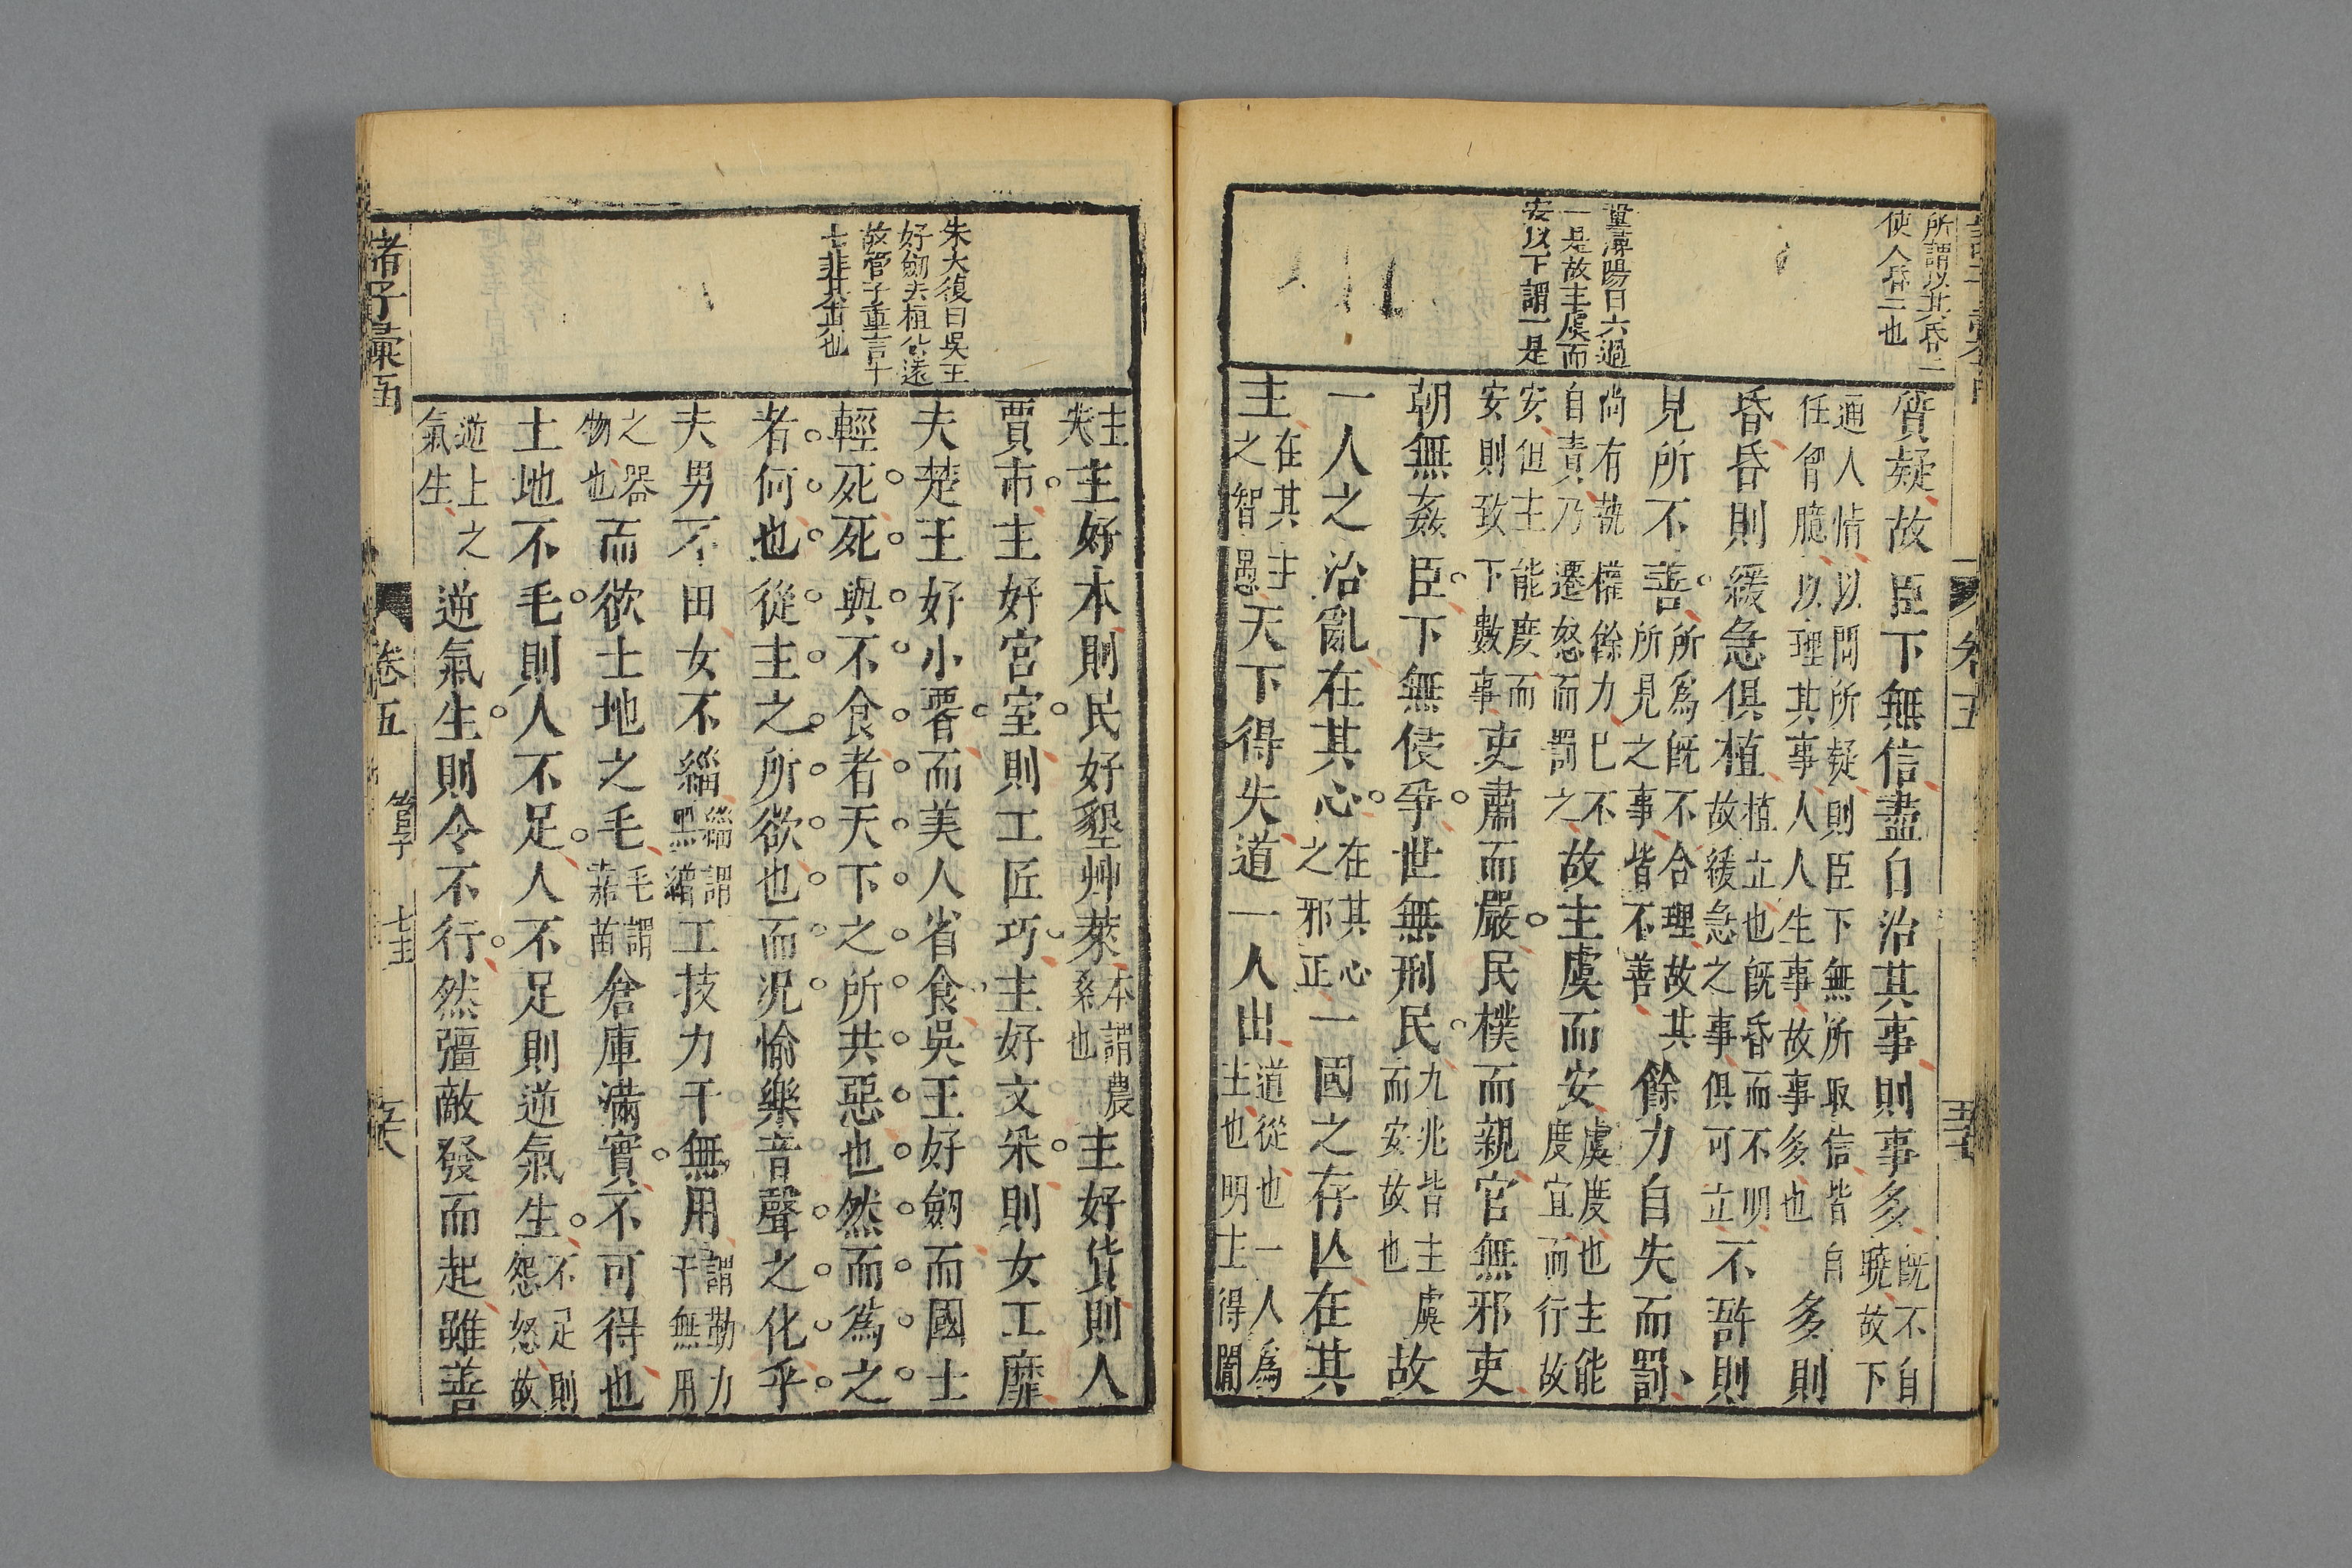 所謂以其昏昏
使人昏昏也
董潯陽曰六過
一是故主虞而
安以下謂一是
質疑故臣下無信盡自治其事則事多既不自曉故下
通人情以問所疑則臣下無所取信皆自任胷臆以理其事人人生事故事多也多則
昏昏則緩急俱植植立也既昏而不明故緩急之事俱可立不咎則
見所不善所為既不合理故其所見之事皆不善餘力自失而罰
尚有執權餘力已不自責乃遷怒而罰之故主虞而安虞度也主能度宜而行故
安但主能度而安則致下數事吏肅而嚴民樸而親官無邪吏
朝無姦臣下無侵爭世無刑民九兆皆主虞而安故也故
一人之治亂在其心在其心之邪正一國之存亾在其
主在其主之智愚天下得失道一人出道從也一人為主也明主得闇
主失主好本則民好墾艸萊本謂農桑也主好貨則人
賈市主好宮室則工匠巧主好文采則女工靡
夫楚王好小署而美人省食吳王好劒而國士
輕死死與不食者天下之所共惡也然而為之
者何也從主之所欲也而況愉樂音聲之化乎
夫男不田女不緇緇謂黑繒工技力干無用謂勤力干無用
之器物也而欲土地之毛毛謂嘉苗倉庫滿實不可得也
土地不毛則人不足人不足則逆氣生不足則怨怒故
逆上之氣生逆氣生則令不行然彊敵發而起雖善
朱大復曰吳王
好劒夫桓公遠
故管子重言十
七非其書也
諸子彙函
卷五
管子
七主